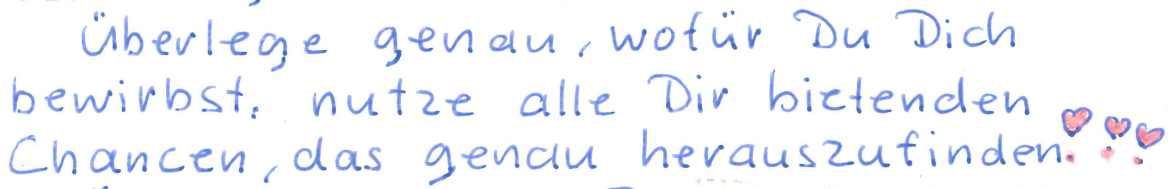 Überlege genau, wofür Du Dich
bewirbst. nutze alle Dir bietenden
Chancen, das genau herauszufinden.